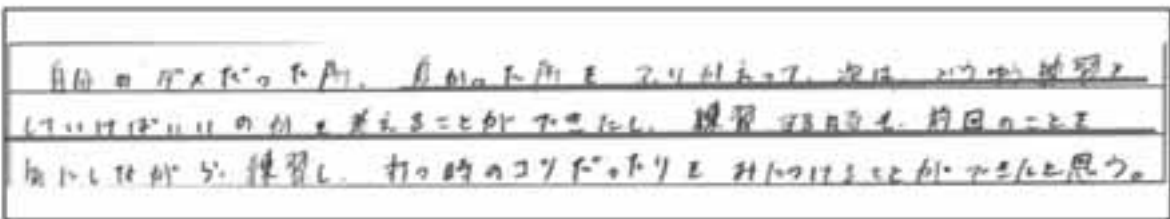 自分のダメだった所、良かった所をふりかえって、次は、どうゆう練習を
していけばいいのかを考えることができたし、練習する時も、前回のことを
気にしながら練習し、打つ時のコツだったりをみつけることができたと思う。